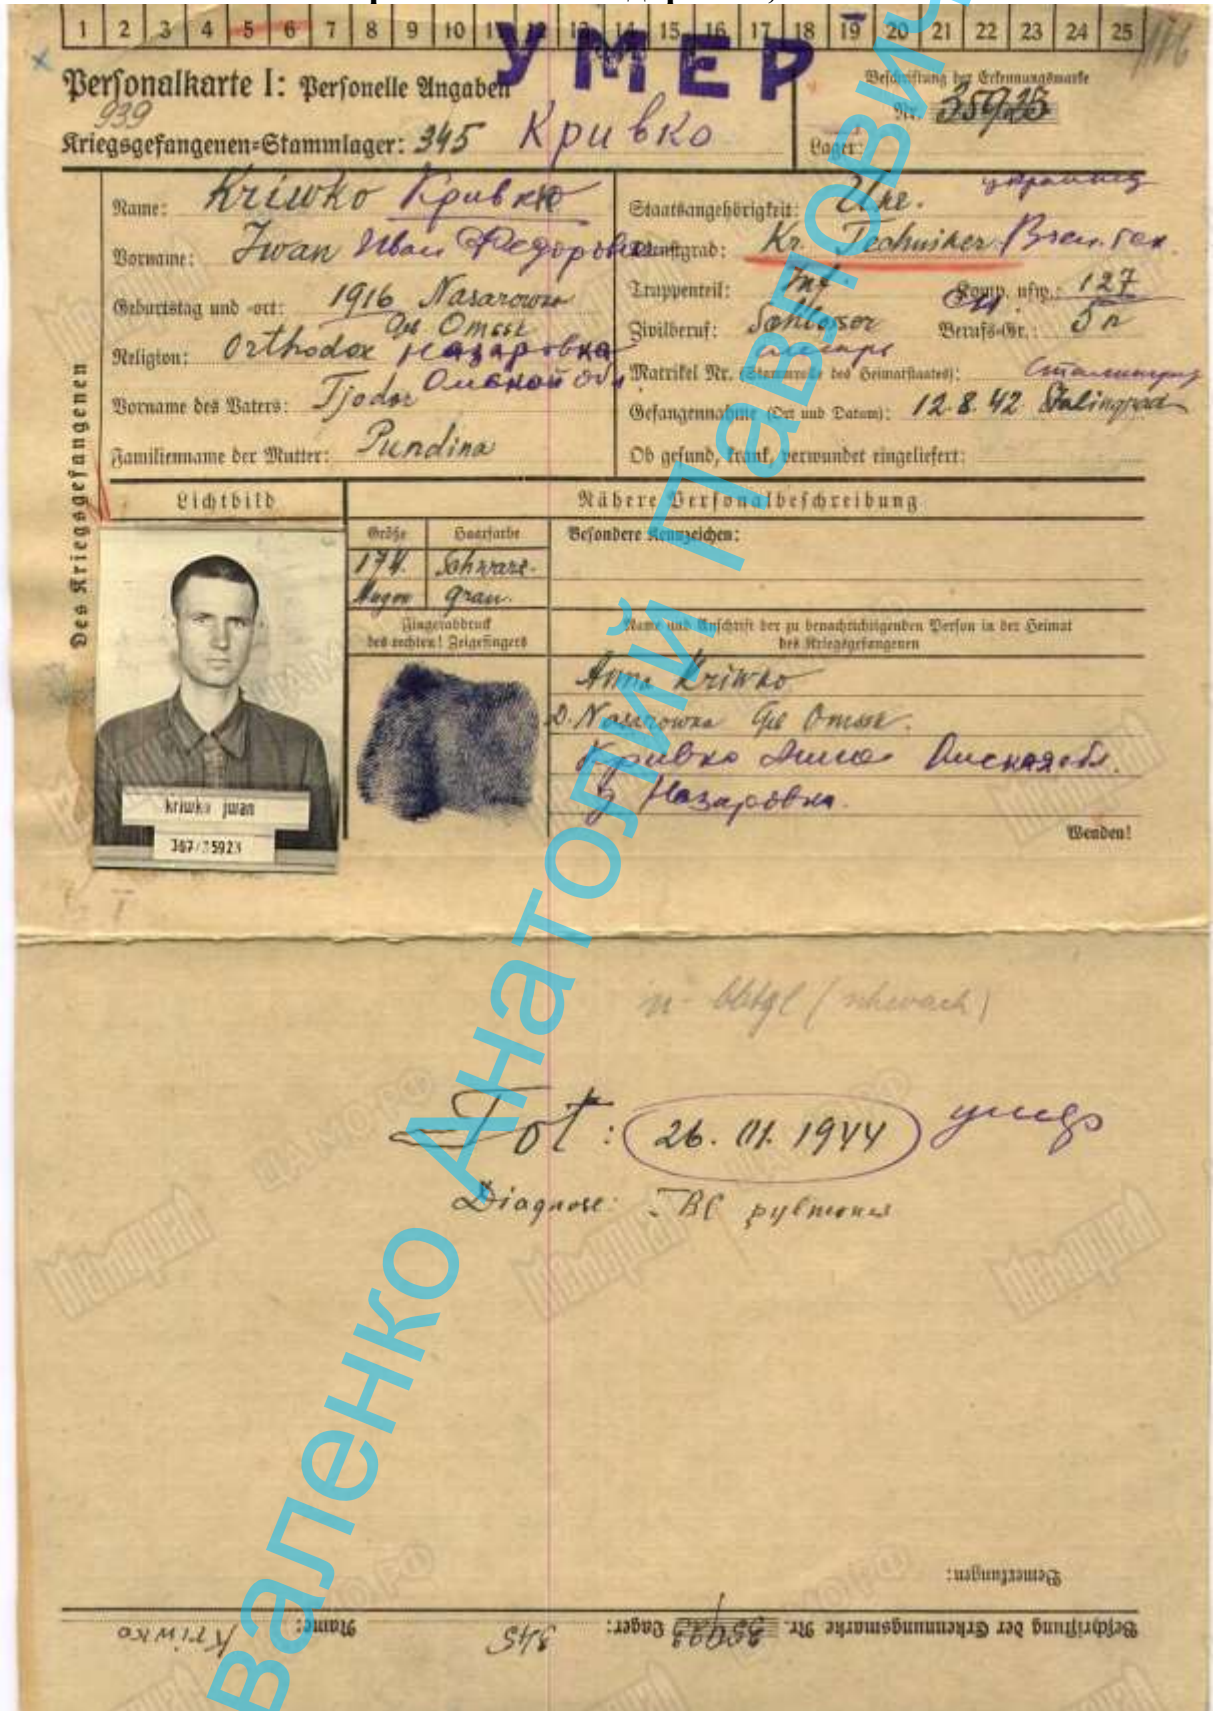 1 2 3 4 5 6 7 8 9 10 11 12 13 14 15 16 17 18 19 20 21 22 23 24 25
УМЕР
Personalkarte I: Personelle Angaben
Beschriftung der Erkennungsmarke
Nr. 35923
939
Kriegsgefangenen-Stammlager: 345 Кривко
Lager:
Des Kriegsgefangenen
Name: Kriwko Кривко
Vorname: Iwan Иван Федорович
Geburtstag und -ort: 1916 Nasarowka
Geb Omssk
Religion: Orthodox Назаровка
Омской обл
Vorname des Vaters: Fjodor
Familienname der Mutter: Pundina
украинец
Staatsangehörigkeit: Ukr.
Dienstgrad: Kr. Techniker Воен. тех.
Truppenteil: Inf. Komp. usw.: 127
Zivilberuf: Schlosser Berufs-Gr.:
слесарь
Matrikel Nr. (Stammrolle des Heimatstaates):
Сталинград
Gefangennahme (Ort und Datum): 12.8.42 Stalingrad
Ob gesund, krank, verwundet eingeliefert:
Lichtbild
Nähere Personalbeschreibung
Größe Haarfarbe
174. Schwarz.
Augen grau.
Besondere Kennzeichen:
Fingerabdruck
des rechten! Zeigefingers
Name und Anschrift der zu benachrichtigenden Person in der Heimat
des Kriegsgefangenen
Anna Kriwko
D. Nasarowka Geb Omssk.
Кривко Анна Омская обл.
д Назаровка.
kriwko jwan
367/35923
Wenden!
Tot: 26. 01. 1944 умер
Diagnose: TBC pulmonis
Bemerkungen:
Beschriftung der Erkennungsmarke Nr. 35923 Lager: 345 Name: Kriwko
валенко Анатолий Павлович
Мемориал
ЦАМО РФ